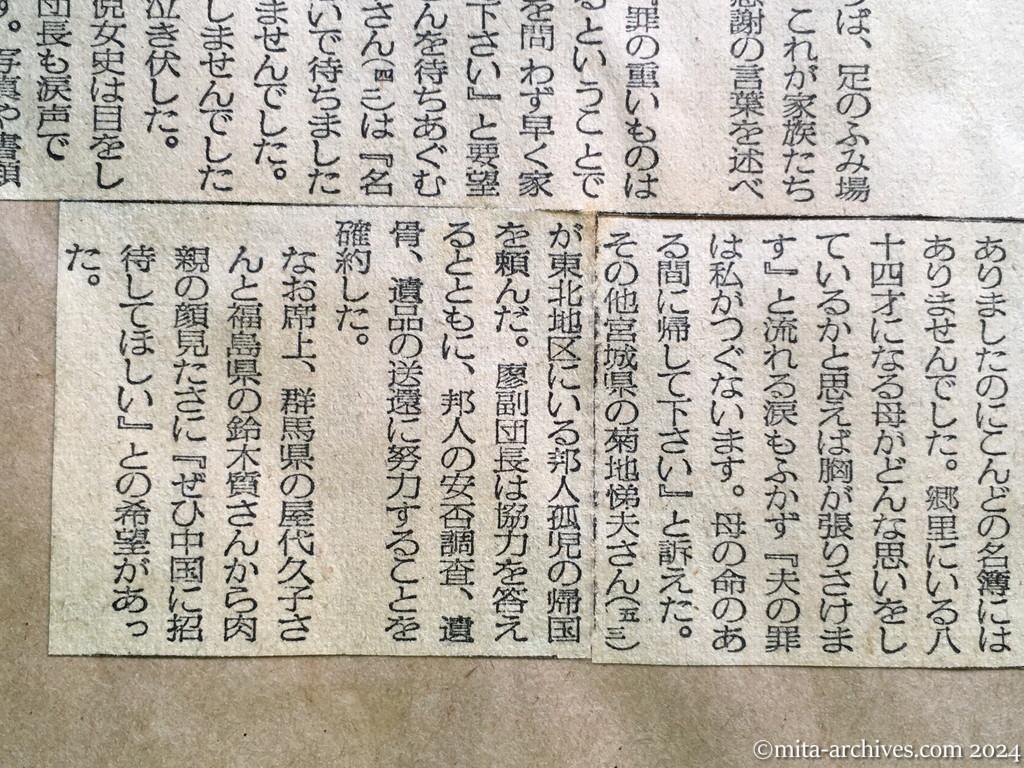 らば、足のふみ場
これが家族たち
感謝の言葉を述べ
罪の重いものは
るということで
を問わず早く家
下さい』と要望
んを待ちあぐむ
さん(四二)は『名
いで待ちました
ませんでした。
しませんでした
泣き伏した。
倪女史は目をし
団長も涙声で
す。写真や書類
ありましたのにこんどの名簿には
ありませんでした。郷里にいる八
十四才になる母がどんな思いをし
ているかと思えば胸が張りさけま
す』と流れる涙もふかず『夫の罪
は私がつぐないます。母の命のあ
る間に帰して下さい』と訴えた。
その他宮城県の菊地悌夫さん(五三)
が東北地区にいる邦人孤児の帰国
を頼んだ。廖副団長は協力を答え
るとともに、邦人の安否調査、遺
骨、遺品の送還に努力することを
確約した。
なお席上、群馬県の屋代久子さ
んと福島県の鈴木質さんから肉
親の顔見たさに『ぜひ中国に招
待してほしい』との希望があっ
た。
©mita-archives.com 2024